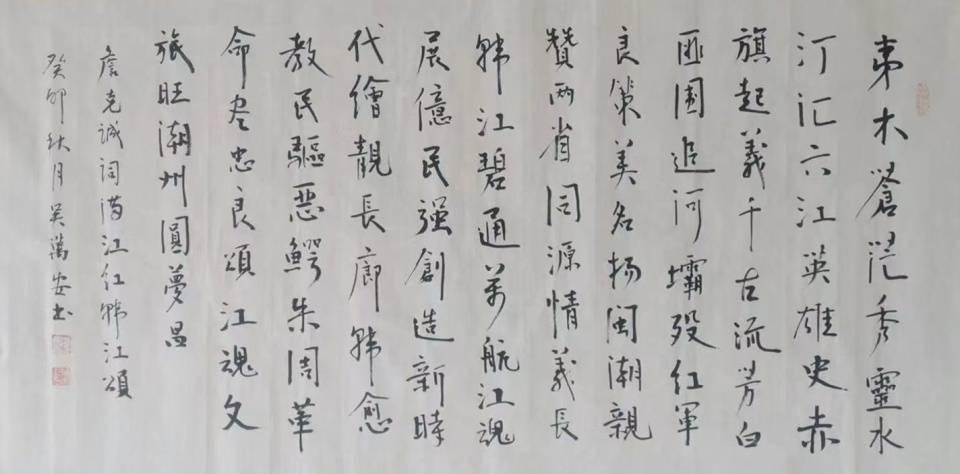 木蒼茫秀靈水
汀汇六江英雄史赤
旗起義千古流芳白
匪围追河壩殁红軍
良策美名扬闽潮親
贊两省同源情義長
韩江碧通萬航江魂
展億民强創造新時
代繪靚長廊韩愈
教民驅惡鳄朱周革
命尽忠良頌江魂文
旅旺潮州圓夢昌
詹克誠词满江红韩江頌
癸卯秋月吴萬安书